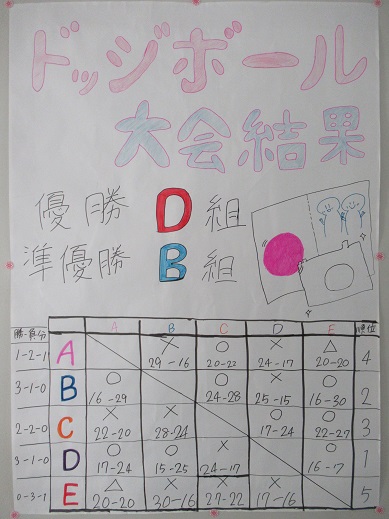 ドッジボール
大会結果
優勝 D 組
準優勝 B 組
勝-負-分 A B C D E 順位
1-2-1 A × 29-16 ○ 20-22 × 24-17 △ 20-20 4
3-1-0 B ○ 16-29 ○ 24-28 × 25-15 ○ 16-30 2
2-2-0 C × 22-20 × 28-24 ○ 17-24 ○ 22-27 3
3-1-0 D ○ 17-24 ○ 15-25 × 24-17 ○ 16-17 1
0-3-1 E △ 20-20 × 30-16 × 27-22 × 17-16 5